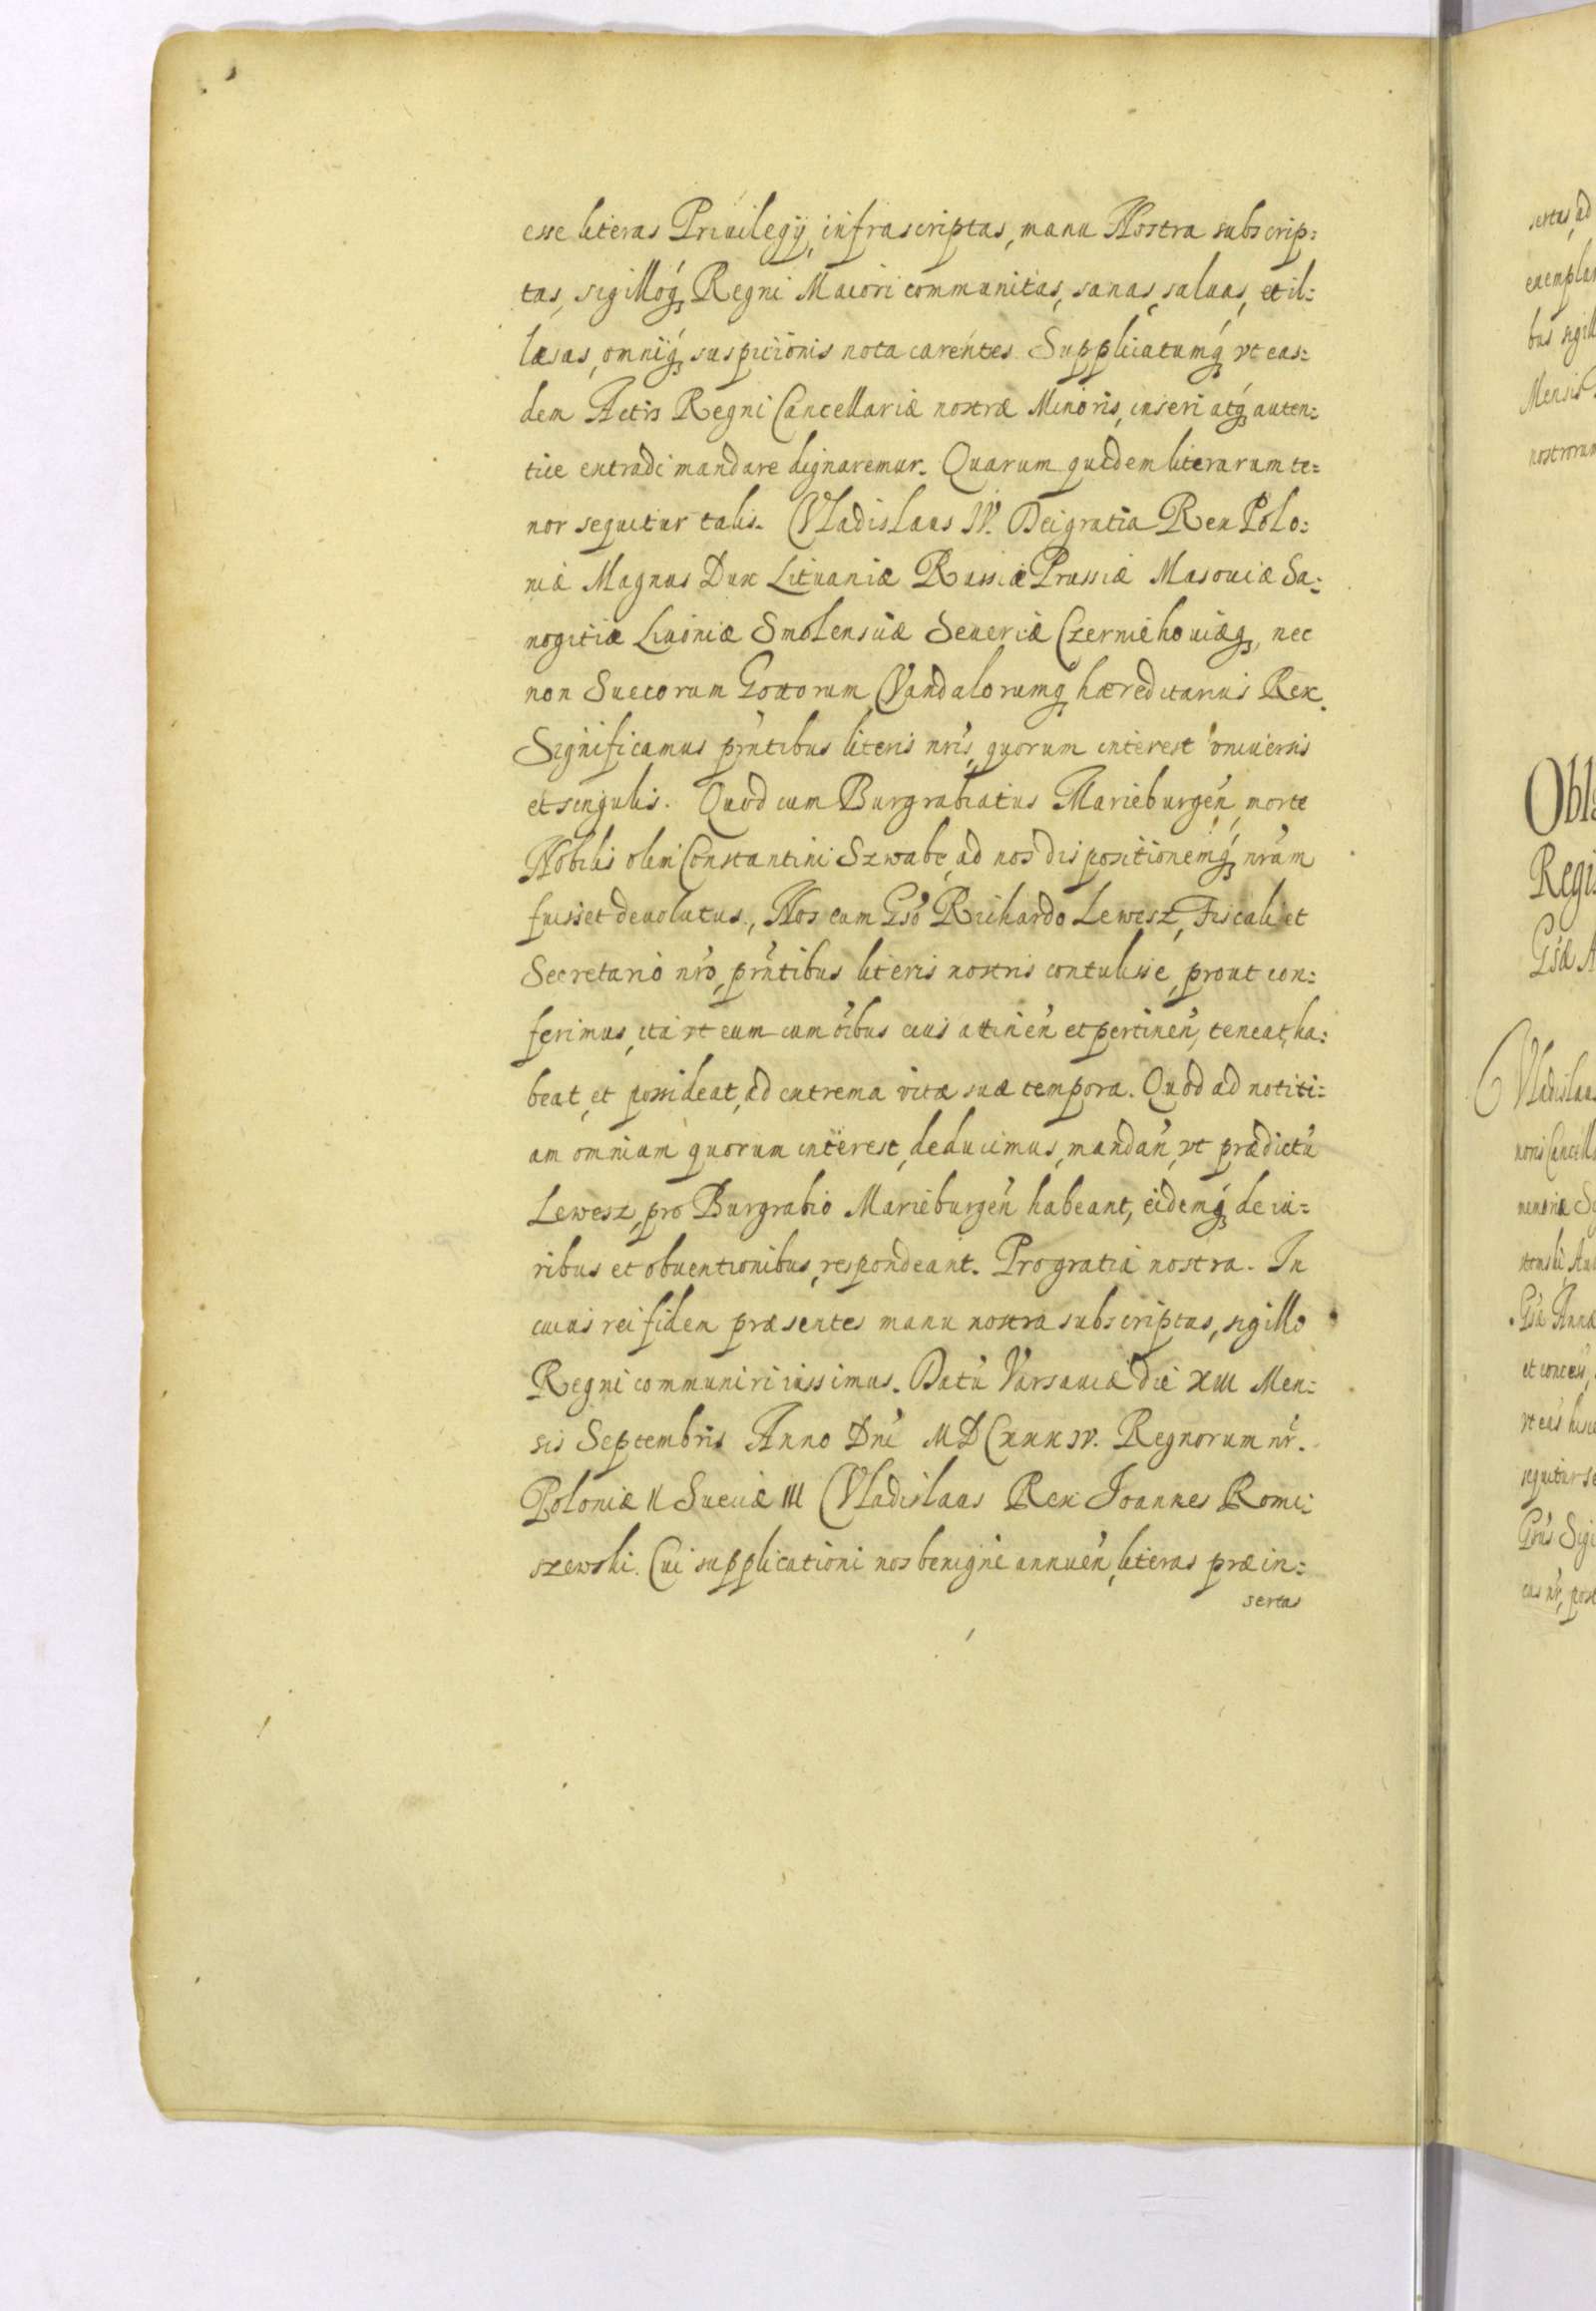 esse literas Priuilegÿ infrascriptas, manu Nostra subscrip:
tas, sigilloq́ꝫ Regni Maiori communitas, sanas, saluas, et il:
læsas, omniq́ꝫ suspicionis nota carentes. Supplicatumq́ꝫ vt eas:
dem Actis Regni Cancellariæ nostræ Minoris, inseri atq́ꝫ auten:
tice extradi mandare dignaremur. Quarum quidem literarum te:
nor sequitur talis. Vladislaus IV. Dei gratia Rex Polo:
niæ Magnus Dux Lituaniæ Russiæ Prussiæ Masouiæ Sa:
nogitiæ Liuoniæ Smolensciæ Seueriæ Czerniehouiæqꝫ, nec
non Suecorum Gottorum Vandalorumqꝫ hæreditarius Rex.
Significamus pr̃ntibus literis nr̃is, quorum interest vniuersis
et singulis. Quod cum Burgrabiatus Marieburgeñ, morte
Nobilis olim Constantini Szwabe, ad nos dispositionemq́ꝫ nr̃am
fuisset deuolutus, Nos eum Gs̃o Richardo Lewesz, Fiscali et
Secretario nr̃o, pr̃ntibus literis nostris contulisse, prout con:
ferimus, ita vt eum cum õibus eius attineñ et pertineñ, teneat, ha:
beat, et possideat, ad extrema vitæ suæ tempora. Quod ad notiti:
am omnium quorum interest, deducimus, mandañ, vt prædictũ
Lewesz, pro Burgrabio Marieburgeñ habeant, eidemq́ꝫ de iu:
ribus et obuentionibus, respondeant. Pro gratia nostra. In
cuius rei fidem præsentes manu nostra subscriptas, sigillo
Regni communiri iussimus. Datũ Varsauiæ die XIII Men:
sis Septembris Anno Dñi MDCXXXIV. Regnorum nr̃.
Poloniæ II Sueciæ III Vladislaus Rex Joannes Romi:
szewski. Cui supplicationi nos benigne annueñ, literas præin:
sertas